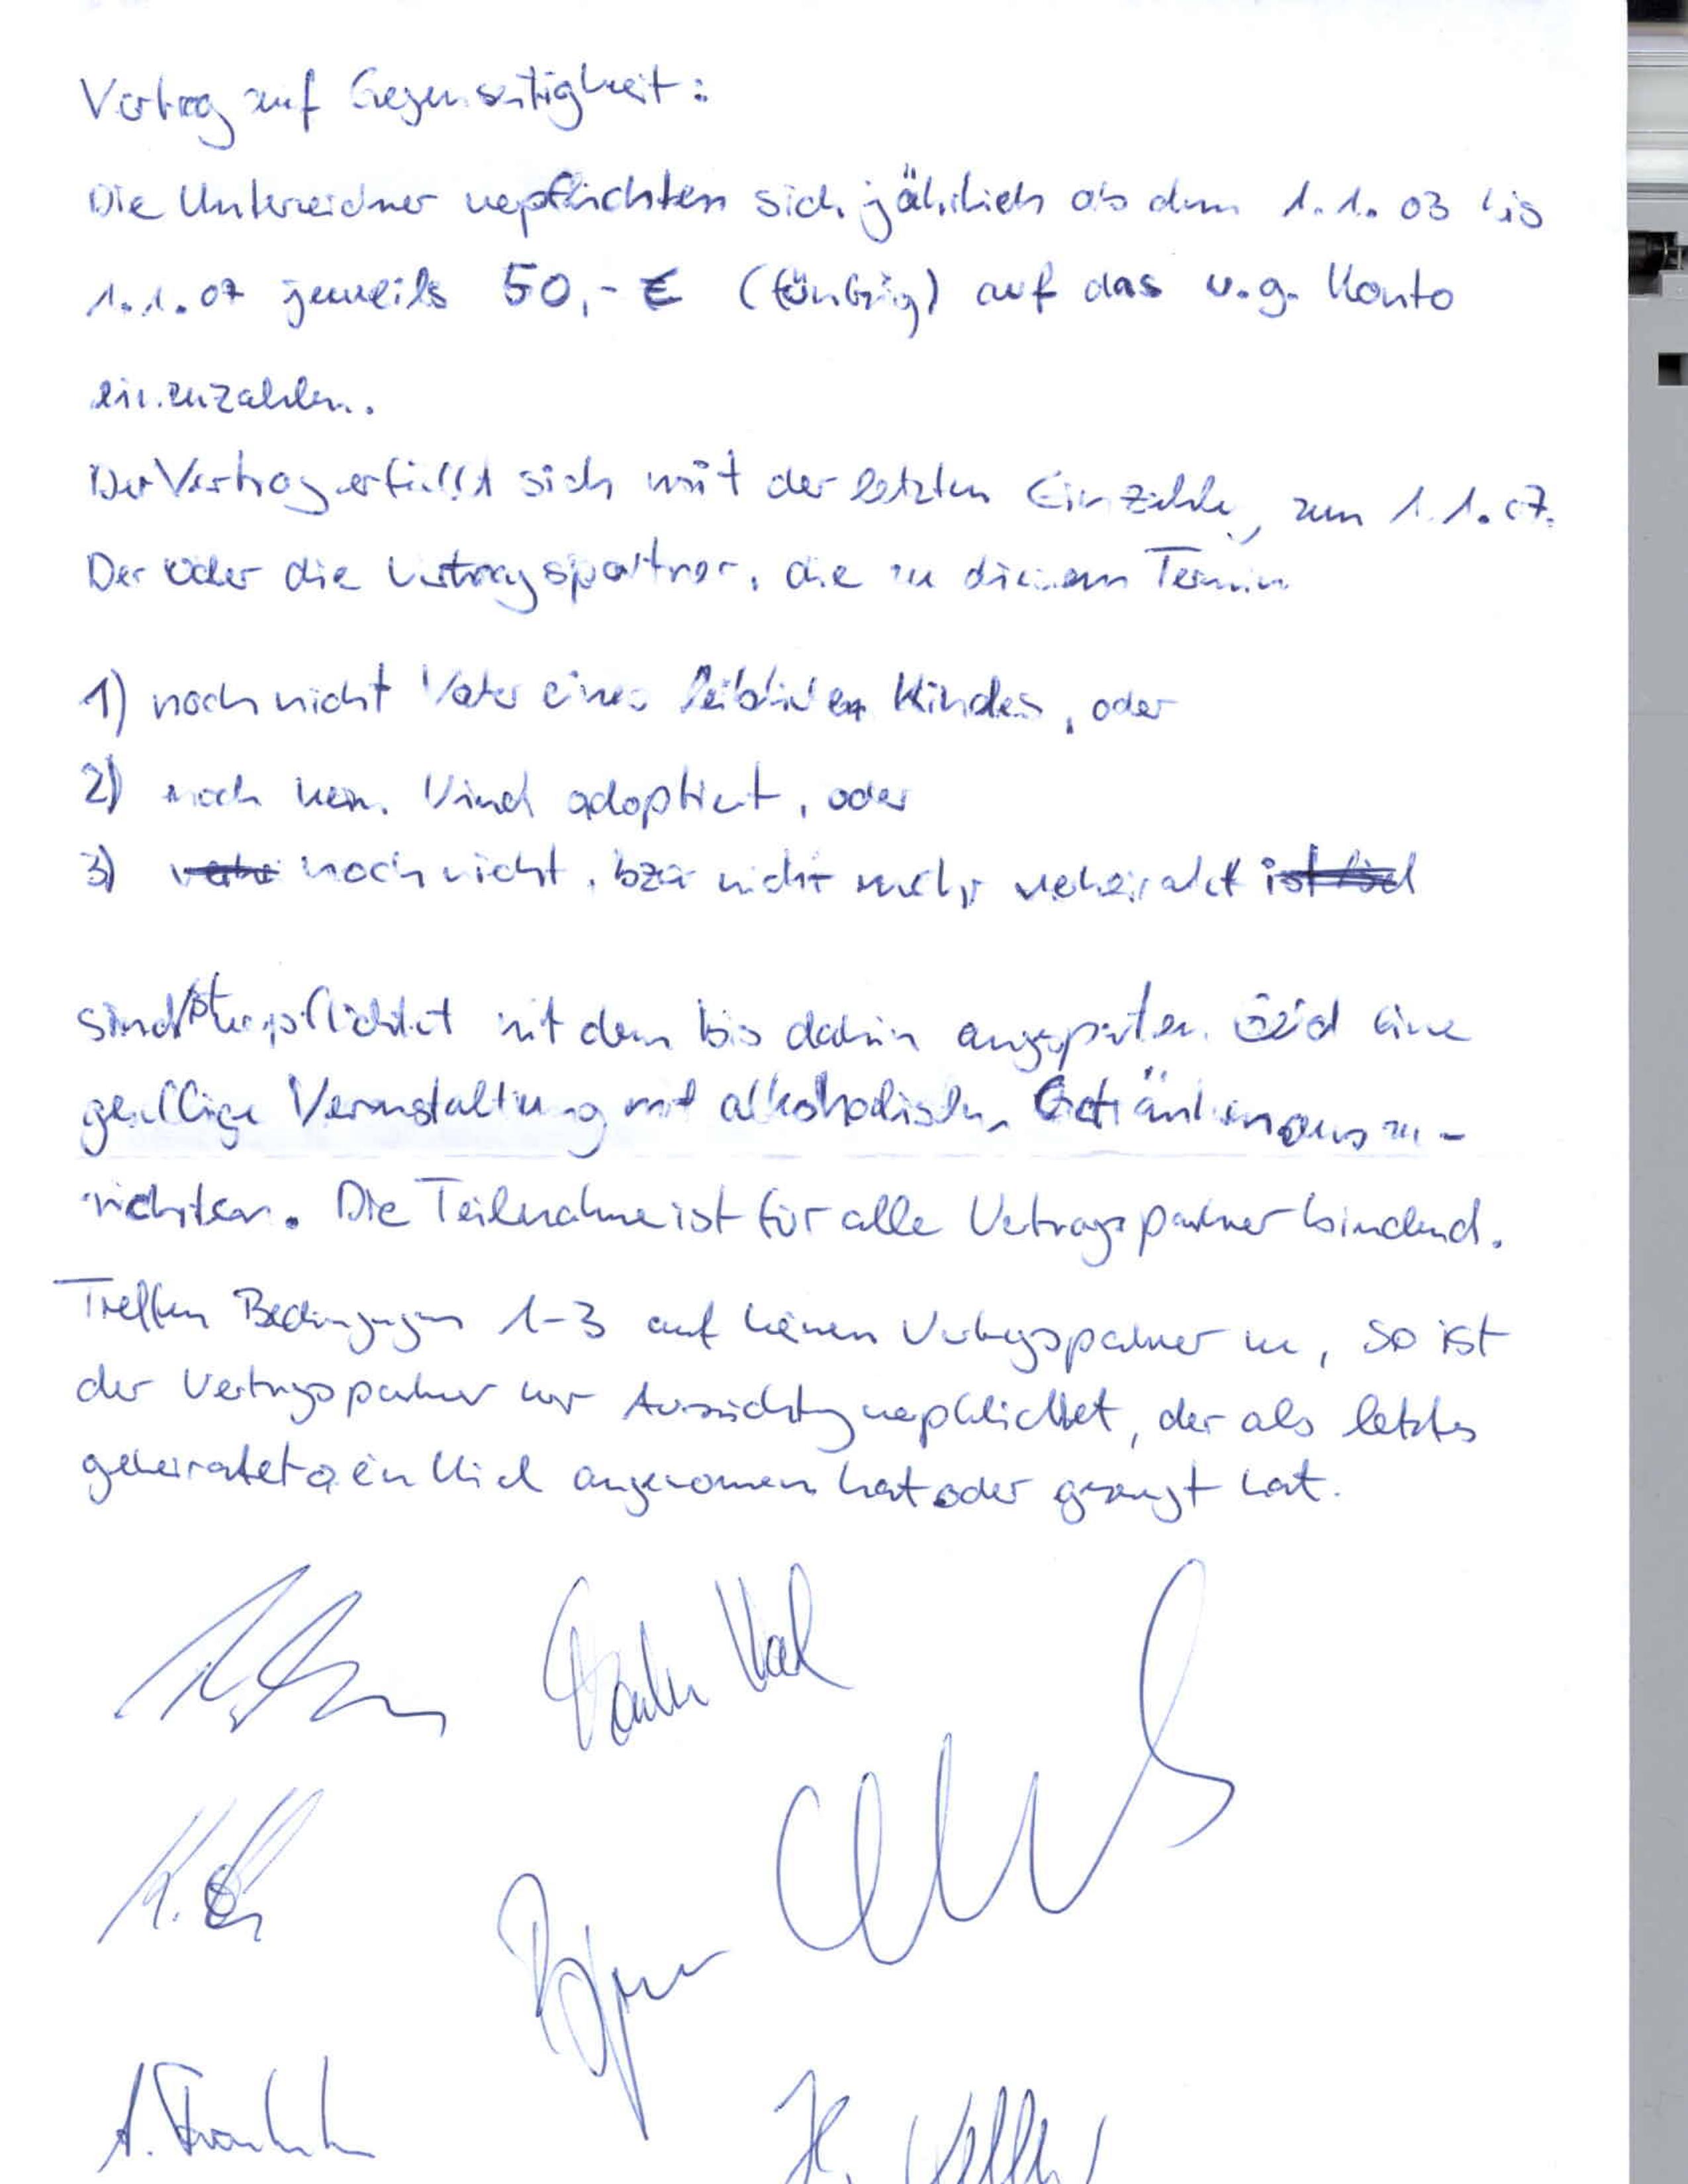 Vertrag auf Gegenseitigkeit:
Die Unterzeichner verpflichten sich jährlich ab dem 1.1.03 bis
1.1.07 jeweils 50,-€ (fünfzig) auf das u.g. Konto
einzuzahlen.
Der Vertrag erfüllt sich mit der letzten Einzahlg, zum 1.1.07.
Der oder die Vertragspartner, die zu diesem Termin
1) noch nicht Vater eines leiblichen Kindes, oder
2) noch kein Kind adoptiert, oder
3) noch nicht, bzw nicht mehr verheiratet ist
sind/ist verpflichtet mit dem bis dahin angesparten Geld eine
gesellige Veranstaltung mit alkoholischen Getränken auszu-
richten. Die Teilnahme ist für alle Vertragspartner bindend.
Treffen Bedingungen 1-3 auf keinen Vertragspartner zu, so ist
der Vertragspartner zur Ausrichtung verpflichtet, der als letztes
geheiratet o. ein Kind angenomen hat oder gezeugt hat.
Björn